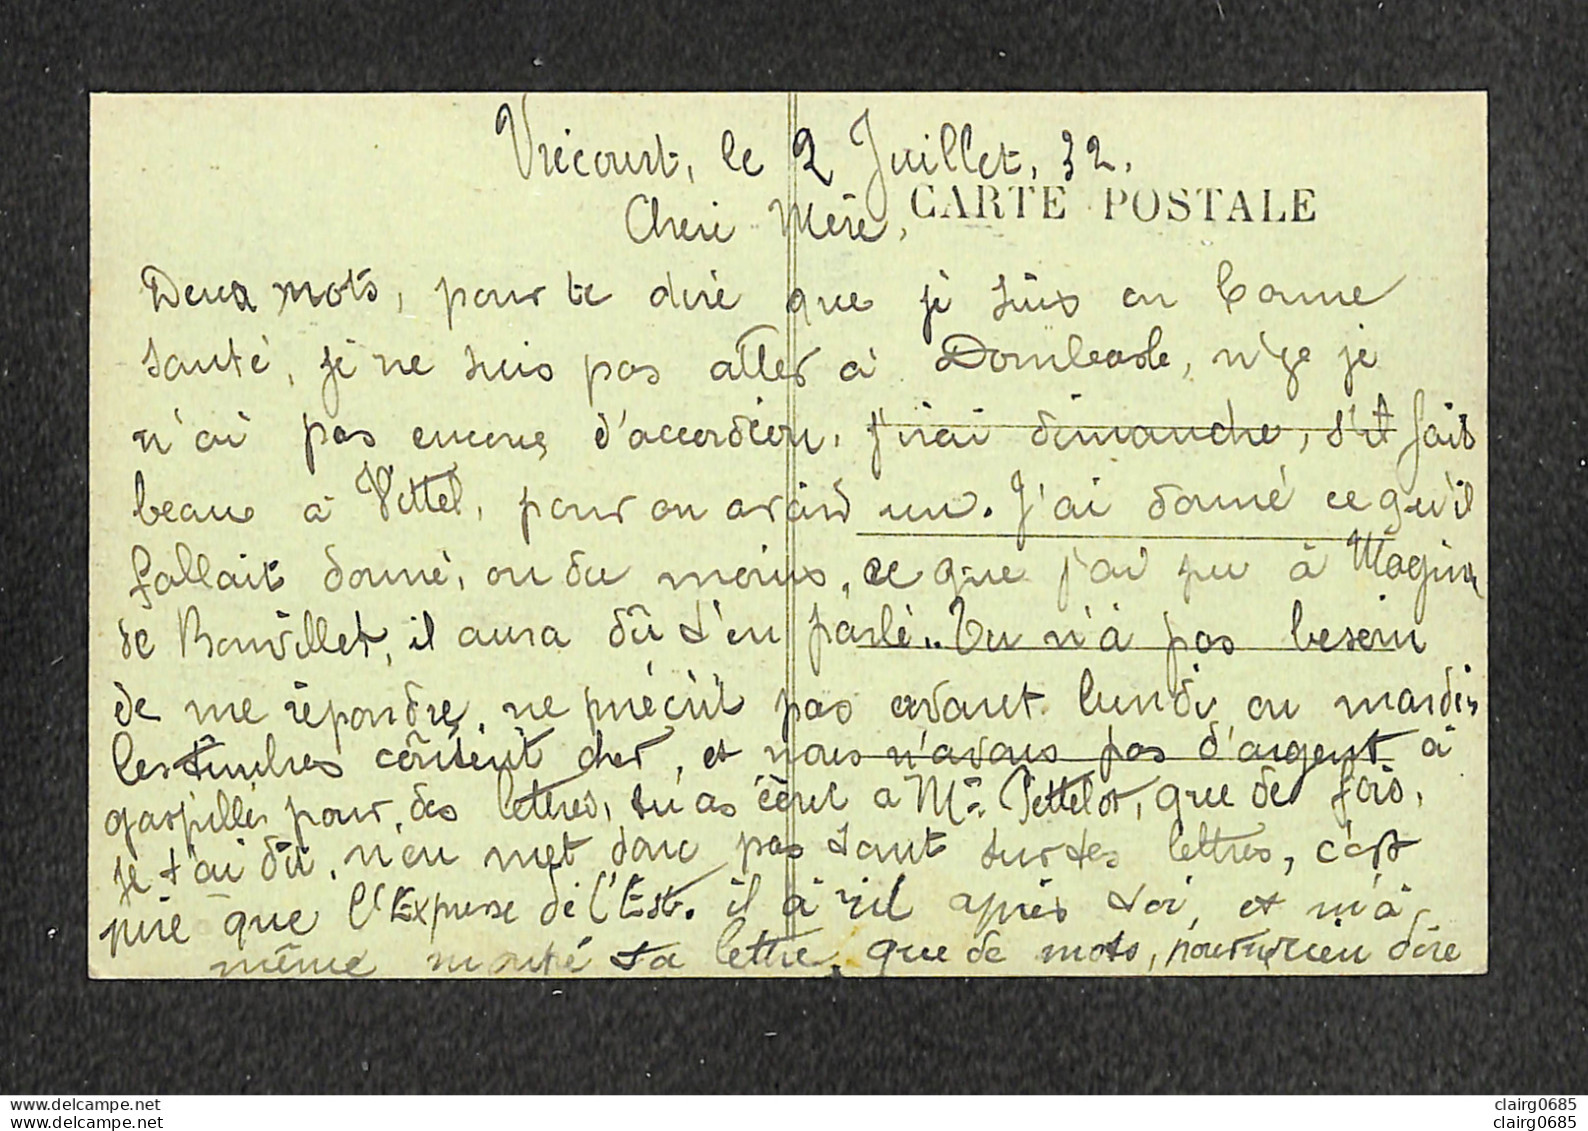 Vrécourt, le 2 Juillet, 32.
CARTE POSTALE
Cheri Mère,
Deux mots, pour te dire que je suis en bonne
santé, je ne suis pas aller à Dombasle, je
n'ai pas encore d'accordéon, j'irai dimanche, s'il fait
beau à Vittel, pour en avoir un. J'ai donné ce qu'il
fallait donné, ou du moins, ce que j'ai pu à Magin
de Bonvillet, il aura dû t'en parlé.. Tu n'à pas besoin
de me répondre, ne m'écrit pas avant lundi ou mardi,
les timbres coûtent cher, et nous n'avons pas d'argent à
gaspiller pour des lettres, tu as écrit a Mr Pettelot, que de fois,
je t'ai dû, n'en met donc pas tant sur tes lettres, c'est
pire que l'Express de l'Est. il à ril après toi, et m'à
même montré ta lettre, que de mots, pour ne rien dire
clairg0685
clairg0685
www.delcampe.net
www.delcampe.net